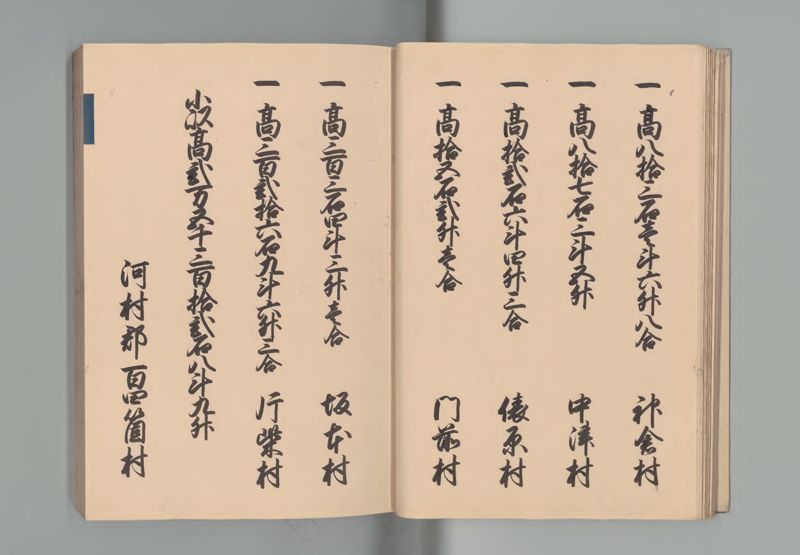 一 高八拾三石壱斗六升八合 神倉村
一 高八拾七石三斗五升 中津村
一 高拾弐石六斗四升三合 俵原村
一 高拾五石弐升壱合 門前村
一 高三百三石四斗三升壱合 坂本村
一 高三百弐拾六石九斗六升三合 片柴村
小以高弐万五千三百拾弐石八斗九升
河村郡 百四箇村